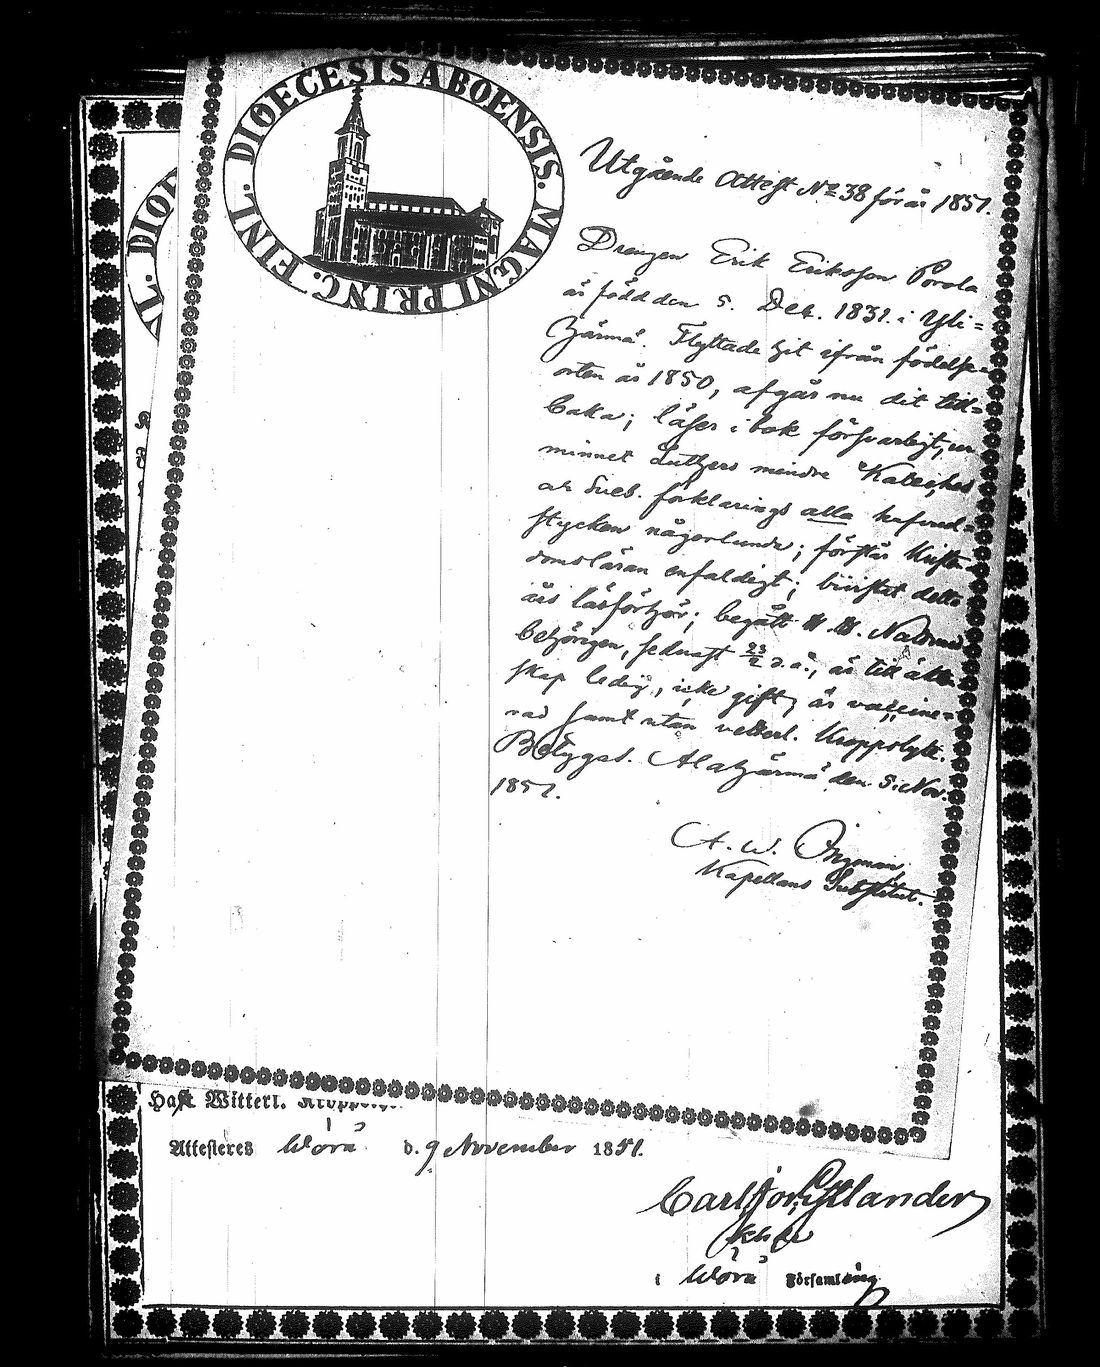 DIOECESIS ABOENSIS. MAGNI PRINC. FINL.
Utgående Attest No 38 för år 1851.
Drengen Erik Eriksson Porola
är född den 5. Dec. 1831. i Yli=
härmä. Flyttade hit ifrån födelse=
orten år 1850, afgår nu dit till=
baka; läser i bok försvarligt, ur
minnet Luthers mindre Kateches
och Sveb. förklarings alla hufvud=
stycken någorlunda; förstår Christen=
domsläran enfaldigt; bivistat detta
års läsförhör; begått H. H. Nattvard
behörigen, sednast 23/2 d. å., är till äkten=
skap ledig, icke gift, är vaccine=
rad samt utan veterl. kroppslyte.
Betygar. Alahärmä den 5. Nov.
1851.
A. W. Ingman,
Kapellans Substitut.
VL. DIOE
Haft Witterl.
Attesteres Wörå d. 9 November 1851.
Carl Gyllander
i Wörå Församling